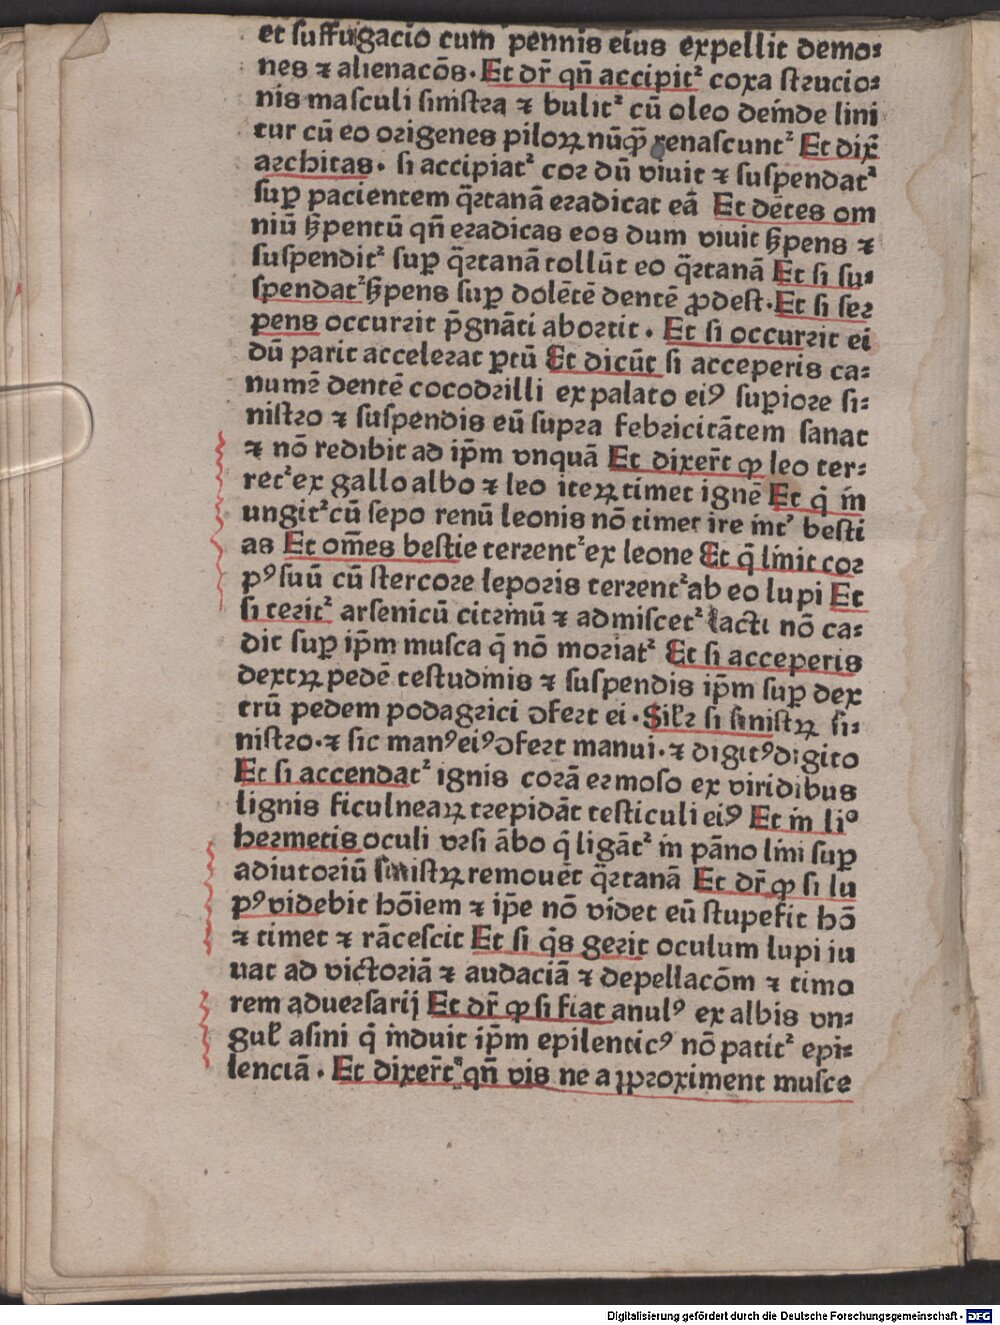 et ſuffugacio cum pennis eius expellit demo⸗
nes ⁊ alienacōs. Et dr̄ qn̄ accipit᷑ coxa ſtrucio⸗
nis maſculi ſiniſtra ⁊ bulit᷑ cū oleo deinde lini
tur cū eo origenes piloꝝ nūꝙ̄ renaſcunt᷑ Et dix̄
architas. ſi accipiat᷑ cor dū viuit ⁊ ſuſpendat᷑
ſuꝑ pacientem q̄rtanā eradicat eā Et dētes om
niū ẜpentū qn̄ eradicas eos dum viuit ẜpens ⁊
ſuſpendit᷑ ſuꝑ q̄rtanā tollūt eo q̄rtanā Et ſi ſu⸗
ſpendat᷑ ẜpens ſuꝑ dolētē dentē ꝓdeſt. Et ſi ſer
pens occurrit p̄gnāti abortit. Et ſi occurrit ei
dū parit accelerat ꝑtū Et dicūt ſi acceperis ca⸗
numr̄ dentē cocodrilli ex palato eiꝰ ſuꝑiore ſi⸗
niſtro ⁊ ſuſpendis eū ſupra febricitātem ſanat
⁊ nō redibit ad ip̄m vnquā Et dixer̄t ꝙ leo ter⸗
ret᷑ ex gallo albo ⁊ leo iteꝝ timet ignē Et q̇ in
ungit᷑ cū ſepo renū leonis nō timet ire int᷑ beſti
as Et om̄es beſtie terrent᷑ ex leone Et q̇ linit cor
pꝰ ſuū cū ſtercore leporis terrent᷑ ab eo lupi Et
ſi terit᷑ arſenicū citrinū ⁊ admiſcet᷑ lacti nō ca⸗
dit ſuꝑ ip̄m muſca q̄ nō moriat᷑ Et ſi acceperis
dextꝝ pedē teſtudinis ⁊ ſuſpendis ip̄m ſuꝑ dex
trū pedem podagrici ↄfert ei. Sil̄r ſi ſiniſtꝝ ſi⸗
niſtro. ⁊ ſic manꝰ eiꝰ ↄfert manui. ⁊ digitꝰ digito
Et ſi accendat᷑ ignis corā ermoſo ex viridibus
lignis ficulneaꝝ trepidāt teſticuli eiꝰ Et in liᵒ
hermetis oculi vrſi ābo q̇ ligāt᷑ in pāno lini ſuꝑ
adiutoriū ſiniſtꝝ remouēt q̄rtanā Et dr̄ ꝙ ſi lu
pꝰ videbit hōiem ⁊ ip̄e nō videt eū ſtupefit hō
⁊ timet ⁊ rāceſcit Et ſi q̇s gerit oculum lupi iu
uat ad victoriā ⁊ audaciā ⁊ depellacōm ⁊ timo
rem aduerſarij Et dr̄ ꝙ ſi fiat anulꝰ ex albis vn⸗
gul̄ aſini q̇ induit ip̄m epilenticꝰ nō patit᷑ epi⸗
lenciā. Et dixer̄t qn̄ vis ne aꝓproximent muſce
Digitalisierung gefördert durch die Deutsche Forschungsgemeinschaft - DFG